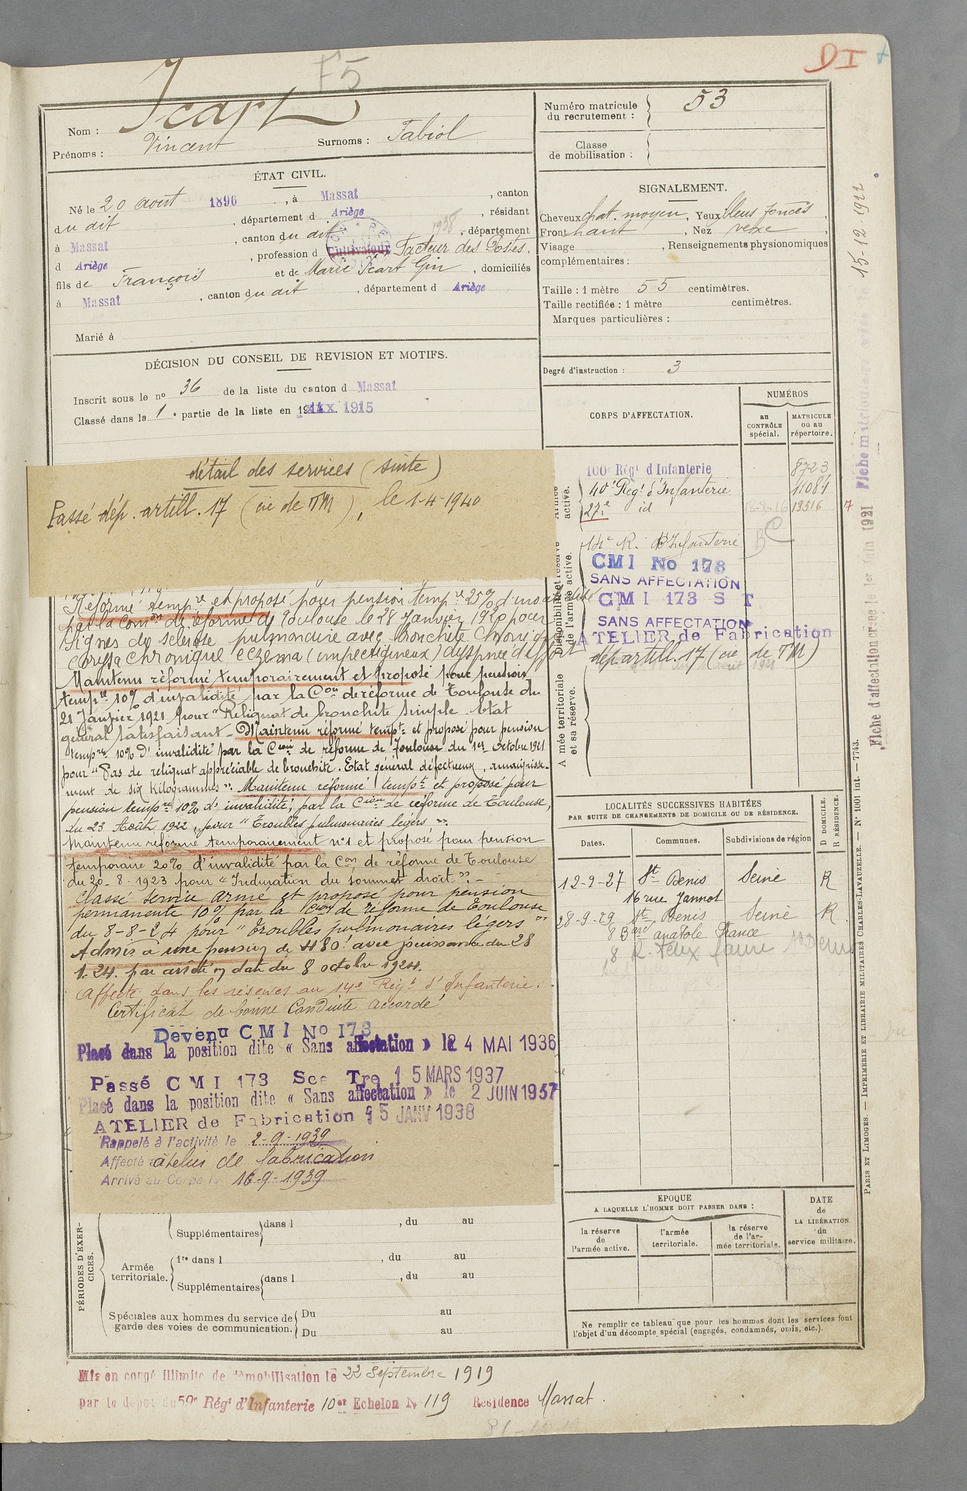 F5
DI
Nom : Icart
Prénoms : Vincent Surnoms : Fabiol
Numéro matricule du recrutement : 53
Classe de mobilisation :
ÉTAT CIVIL.
Né le 20 août 1896, à Massat, canton
du dit, département d Ariège, résidant
à Massat, canton du dit, département
d Ariège, profession d Cultivateur Facteur des Postes.
fils de François et de Marie Icart Gin, domiciliés
à Massat, canton du dit, département d Ariège
Marié à
SIGNALEMENT.
Cheveux chat. moyen, Yeux bleus foncés,
Front haut, Nez vexe
Visage, Renseignements physionomiques
complémentaires :
Taille : 1 mètre 55 centimètres.
Taille rectifiée : 1 mètre centimètres.
Marques particulières :
Degré d'instruction : 3
DÉCISION DU CONSEIL DE REVISION ET MOTIFS.
Inscrit sous le no 36 de la liste du canton d Massat
Classé dans la 1e partie de la liste en 1915
détail des services (suite)
Passé dép. artill. 17 (cie de TM), le 1-4-1940
Réformé tempre et proposé pour pension tempre 25% d'invalidité
par la Comon de réforme de Toulouse le 28 janvier 1920 pour
signes de sclérose pulmonaire avec bronchite chronique
chronique eczéma (impétigineux) dyspnée d'effort
Maintenu réformé temporairement et proposé pour pension
tempre 10% d'invalidité par la Con de réforme de Toulouse du
21 Janvier 1921 pour "Reliquat de bronchite simple état
général satisfaisant - Maintenu réformé tempt et proposé pour pension
tempre 10% d'invalidité par la Cion de réforme de Toulouse du 1er Octobre 1921
pour "Pas de reliquat appréciable de bronchite. Etat général défectueux, amaigrisse-
ment de six kilogrammes". Maintenu réformé tempt et proposé pour
pension tempre 10% d'invalidité, par la Cion de réforme de Toulouse,
du 23 Août 1922, pour "Troubles pulmonaires légers".
Maintenu réformé temporairement no1 et proposé pour pension
temporaire 20% d'invalidité par la Con de réforme de Toulouse
du 20-8-1923 pour "Induration du sommet droit". -
Classé service armé et proposé pour pension
permanente 10% par la Cion de réforme de Toulouse
du 8-8-24 pour "troubles pulmonaires légers"
Admis à une pension de 480f avec jouissance du 28
1.24. par arrêté en date du 8 octobre 1924.
Affecté dans les réserves au 14e Régt d'Infanterie.
Certificat de bonne Conduite accordé
Devenu CMI No 173
Placé dans la position dite « Sans affectation » le 24 MAI 1936
Passé CMI 173 Sce Tre 15 MARS 1937
Placé dans la position dite « Sans affectation » le 2 JUIN 1937
ATELIER de Fabrication 25 JANV 1938
Rappelé à l'activité le 2-9-1939
Affecté atelier de fabrication
Arrivé au Corps le 16-9-1939
CORPS D'AFFECTATION.
NUMÉROS
au CONTRÔLE spécial.
MATRICULE ou au répertoire.
Armée active.
100e Régt d'Infanterie 8723
40e Régt d'Infanterie 11081
27e id 13516
Disponibilité et réserve de l'armée active.
14e R. d'Infanterie
CMI No 173
SANS AFFECTATION
CMI 173 S T
SANS AFFECTATION
ATELIER de Fabrication
dép artill. 17 (cie de TM)
Armée territoriale et sa réserve.
LOCALITÉS SUCCESSIVES HABITÉES
PAR SUITE DE CHANGEMENTS DE DOMICILE OU DE RÉSIDENCE.
Dates. Communes. Subdivisions de région D. DOMICILE. R. RÉSIDENCE.
12-9-27 St Denis Seine R
16 rue Jannot
28-9-29 St Denis Seine R.
8 Bard anatole France
8 R. Felix Faure St Denis
EPOQUE
A LAQUELLE L'HOMME DOIT PASSER DANS :
la réserve de l'armée active.
l'armée territoriale.
la réserve de l'armée territoriale.
DATE de LA LIBÉRATION du service militaire.
Ne remplir ce tableau que pour les hommes dont les services font
l'objet d'un décompte spécial (engagés, condamnés, omis, etc.).
PÉRIODES D'EXERCICES.
Supplémentaires dans l , du au
Armée territoriale. 1re dans l , du au
Supplémentaires dans l , du au
Spéciales aux hommes du service de garde des voies de communication. Du au
Du au
Mis en congé illimité de démobilisation le 22 Septembre 1919
par le dépôt du 59e Régt d'Infanterie 10e Echelon N° 119 Résidence Massat.
15-12-1922
Fiche d'affectation créée le 1er Juin 1921
PARIS ET LIMOGES. — IMPRIMERIE ET LIBRAIRIE MILITAIRES CHARLES-LAVAUZELLE. — N° 1001 int. — 7743.